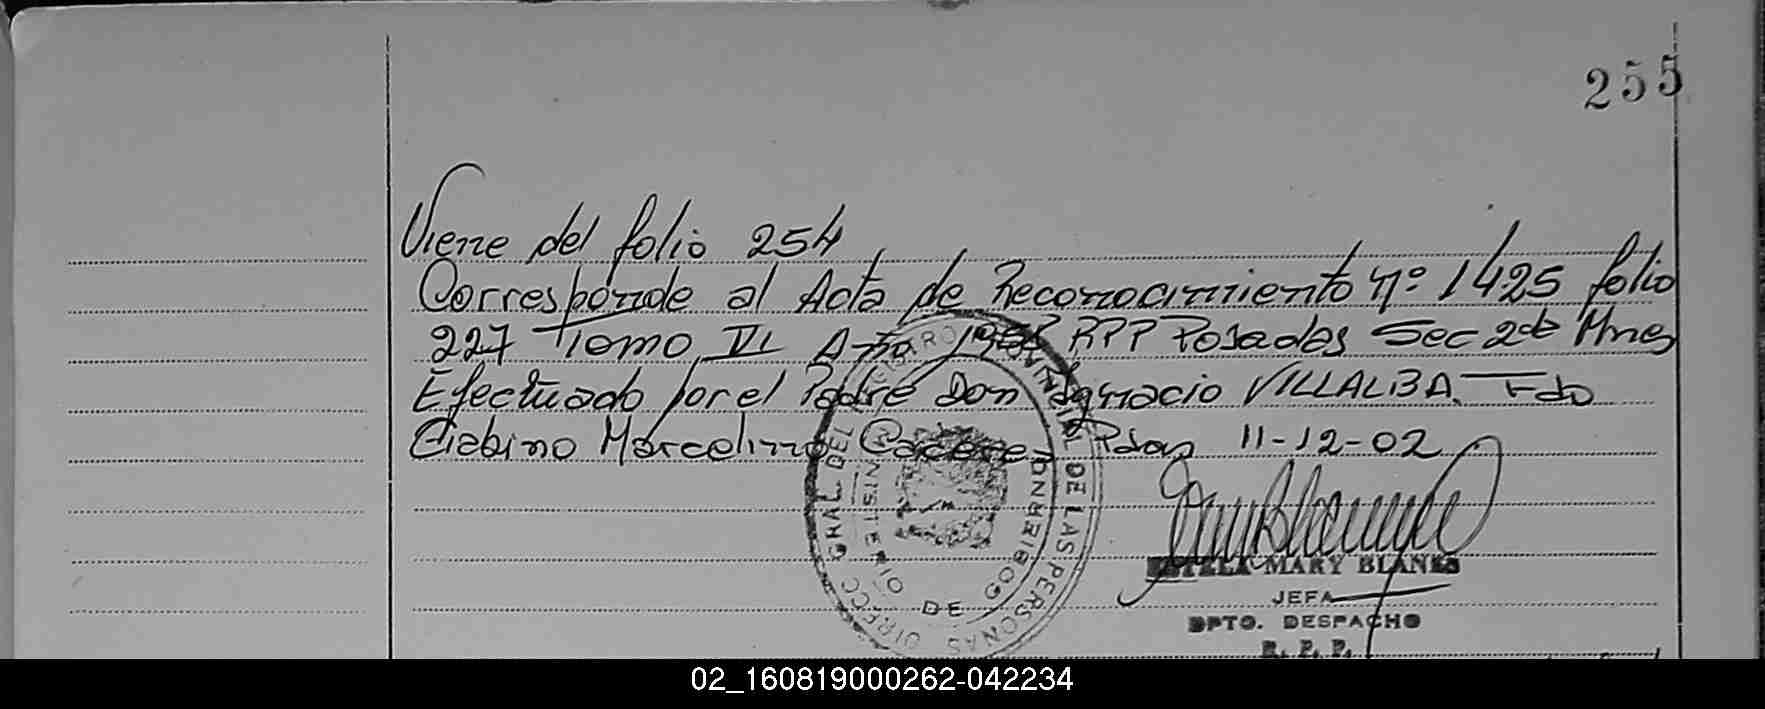 255
Viene del folio 254
Corresponde al Acta de Reconocimiento Nº 1425 folio
227 Tomo VI Año RPP Posadas Sec 2da Mnes
Efectuado por el Padre Don Ignacio VILLALBA. Fdo
Gabino Marcelino Caceres Pdas 11-12-02
DIRECC GRAL DEL REGISTRO PROVINCIAL DE LAS PERSONAS
MINISTERIO DE GOBIERNO
ESTELA MARY BLANES
JEFA
DPTO. DESPACHO
R. P. P.
02_160819000262-042234